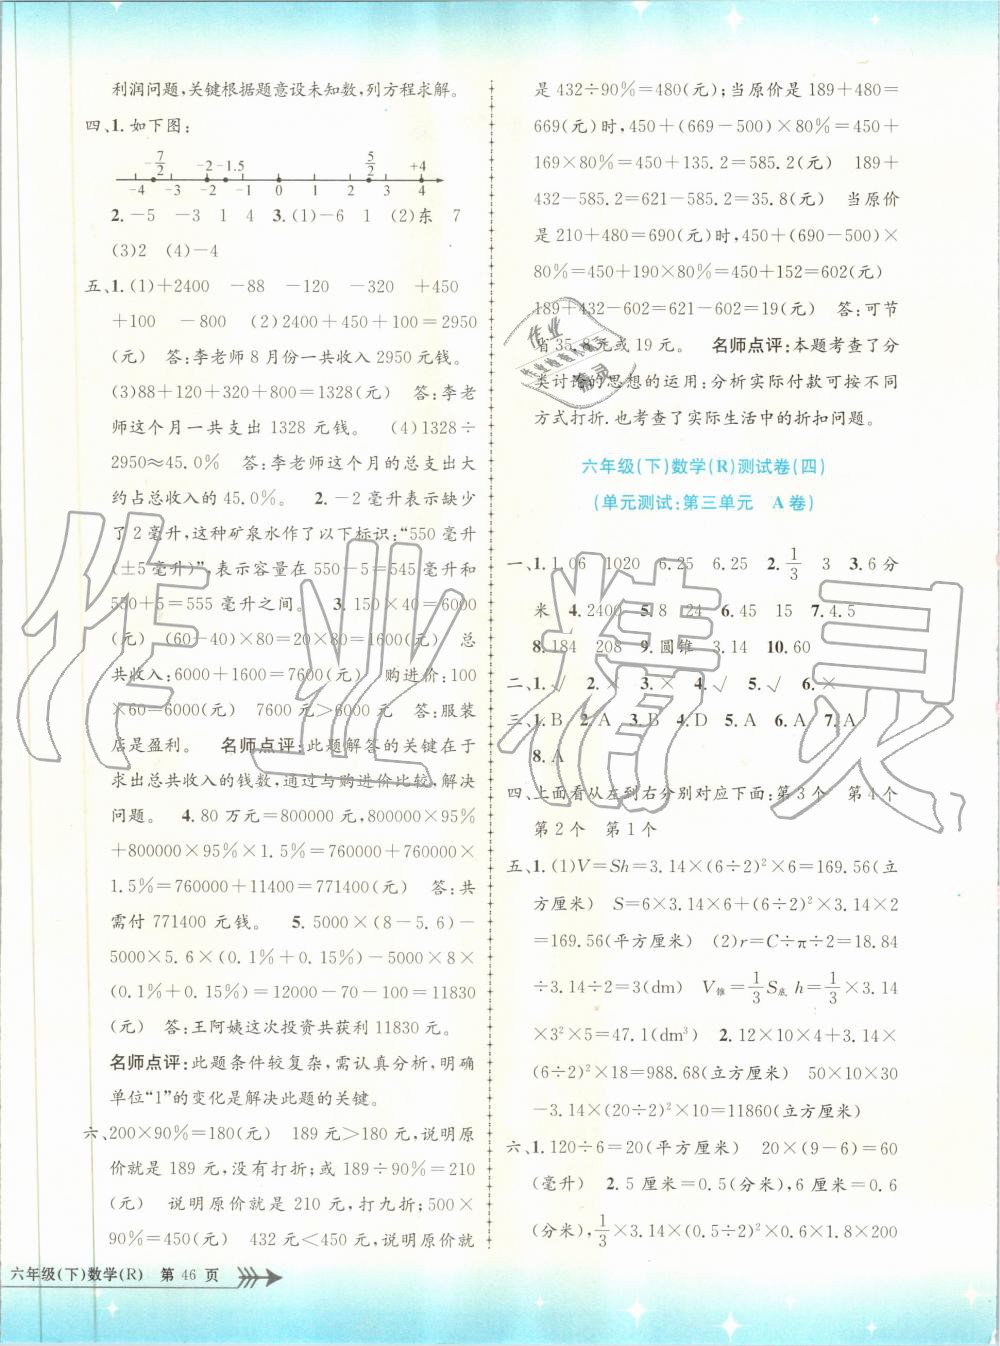 利润问题,关键根据题意设未知数,列方程求解。
四、1.如下图:
-7/2 -2 -1.5 5/2 +4
-4 -3 -2 -1 0 1 2 3 4
2.-5 -3 1 4 3.(1)-6 1 (2)东 7
(3)2 (4)-4
五、1.(1)+2400 -88 -120 -320 +450
+100 -800 (2)2400+450+100=2950
(元) 答:李老师8月份一共收入2950元钱。
(3)88+120+320+800=1328(元) 答:李老
师这个月一共支出1328元钱。 (4)1328÷
2950≈45.0% 答:李老师这个月的总支出大
约占总收入的45.0%。 2.-2毫升表示缺少
了2毫升,这种矿泉水作了以下标识:“550毫升
(±5毫升)”,表示容量在550-5=545毫升和
550+5=555毫升之间。 3.150×40=6000
(元) (60-40)×80=20×80=1600(元) 总
共收入:6000+1600=7600(元) 购进价:100
×60=6000(元) 7600元>6000元 答:服装
店是盈利。 名师点评:此题解答的关键在于
求出总共收入的钱数,通过与购进价比较,解决
问题。 4.80万元=800000元,800000×95%
+800000×95%×1.5%=760000+760000
×1.5%=760000+11400=771400(元) 答:共
需付771400元钱。 5.5000×(8-5.6)-
5000×5.6×(0.1%+0.15%)-5000×8×
(0.1%+0.15%)=12000-70-100=11830
(元) 答:王阿姨这次投资共获利11830元。
名师点评:此题条件较复杂,需认真分析,明确
单位“1”的变化是解决此题的关键。
六、200×90%=180(元) 189元>180元,说明原
价就是189元,没有打折;或189÷90%=210
(元) 说明原价就是210元,打九折;500×
90%=450(元) 432元<450元,说明原价就
是432÷90%=480(元);当原价是189+480=
669(元)时,450+(669-500)×80%=450+
169×80%=450+135.2=585.2(元) 189+
432-585.2=621-585.2=35.8(元) 当原价
是210+480=690(元)时,450+(690-500)×
80%=450+190×80%=450+152=602(元)
189+432-602=621-602=19(元) 答:可节
省35.8元或19元。 名师点评:本题考查了分
类讨论的思想的运用;分析实际付款可按不同
方式打折.也考查了实际生活中的折扣问题。
六年级(下)数学(R)测试卷(四)
(单元测试:第三单元 A卷)
一、1.1.06 1020 6.25 6.25 2.1/3 3 3.6分
米 4.2400 5.8 24 6.45 15 7.4.5
8.184 208 9.圆锥 3.14 10.60
二、1.√ 2.× 3.× 4.√ 5.√ 6.×
三、1.B 2.A 3.B 4.D 5.A 6.A 7.A
8.A
四、上面看从左到右分别对应下面:第3个 第4个
第2个 第1个
五、1.(1)V=Sh=3.14×(6÷2)²×6=169.56(立
方厘米) S=6×3.14×6+(6÷2)²×3.14×2
=169.56(平方厘米) (2)r=C÷π÷2=18.84
÷3.14÷2=3(dm) V锥=1/3S底h=1/3×3.14
×3²×5=47.1(dm³) 2.12×10×4+3.14×
(6÷2)²×18=988.68(立方厘米) 50×10×30
-3.14×(20÷2)²×10=11860(立方厘米)
六、1.120÷6=20(平方厘米) 20×(9-6)=60
(毫升) 2.5厘米=0.5(分米),6厘米=0.6
(分米),1/3×3.14×(0.5÷2)²×0.6×1.8×200
六年级(下)数学(R) 第46页
作业精灵
作业
精灵